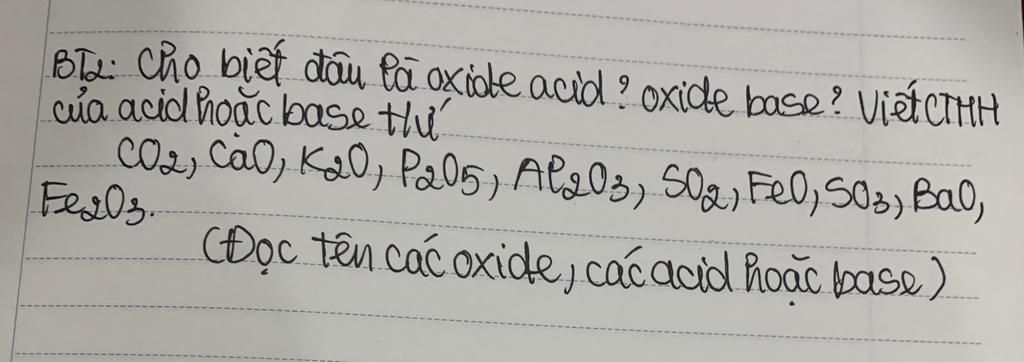 BT2: Cho biết đâu là oxide acid? oxide base? Viết CTHH
của acid hoặc base thứ
CO2, CaO, K2O, P2O5, Al2O3, SO2, FeO, SO3, BaO,
Fe2O3.
(Đọc tên các oxide, các acid hoặc base)